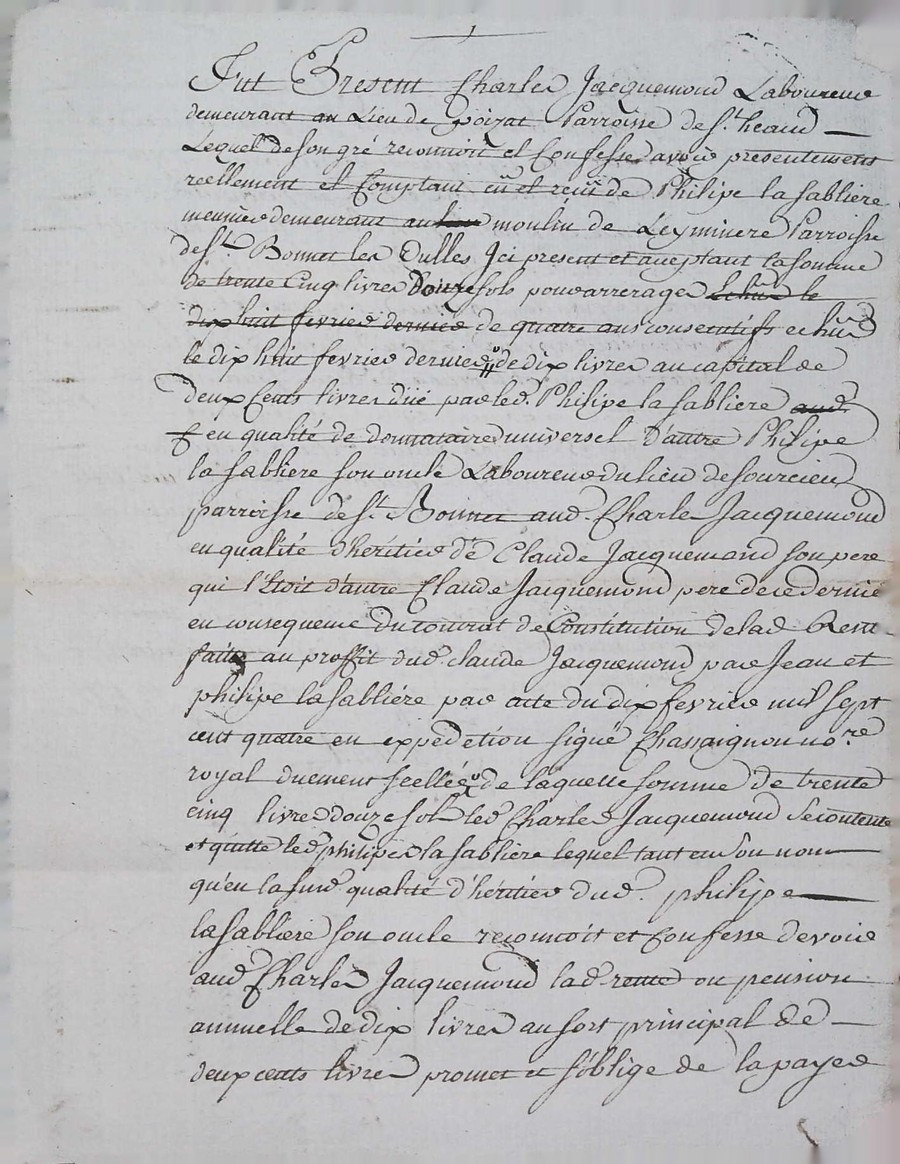 Fut Present Charles Jacquemond Laboureur
demeurant au Lieu de poizat Parroisse de st. heand
Lequel de son gré reconnoit et Confesse avoir presentement
reellement et Comptant eü et receü de Philipe la sabliere
meunier demeurant au lieu moulin de Leyminere Parroisse
de st. Bonnet les Oulles Ici present et aceptant la somme
de trente Cinq livres douze sols pour arrerages Echus le
dix huit fevrier dernier de quatre ans consecutifs echus
le dix huit fevrier dernier de dix livres au capital de
deux Cents livres düe par led. Philipe la sabliere aud.
en qualité de donnataire universel D'autre Philipe
la sabliere son oncle Laboureur du lieu de sourcieu
parroisse de st. Bonnet aud. Charle Jacquemond
en qualité d'héritier de Claude Jacquemond son pere
qui l'Etoit d'autre Claude Jacquemond pere de ce dernier
en consequence du contrat de Constitution de lad Rente
faite au proffit dud. claude Jacquemond par Jean et
philipe la sabliére par acte du dix fevrier mil sept
cent quatre en expedetion signé Chassaignon nore.
royal duement scellée de laquelle somme de trente
cinq livres douze sols led Charles Jacquemond se contente
et quitte led philipe la sabliere lequel tant en son nom
qu'en la susd. qualité d'héritier dud. philipe
la sabliere son oncle reconnoit et Confesse devoir
aud Charles Jacquemond lad rente ou pension
annuelle de dix livres au sort principal de
deux cents livres promet et s'oblige de la payer